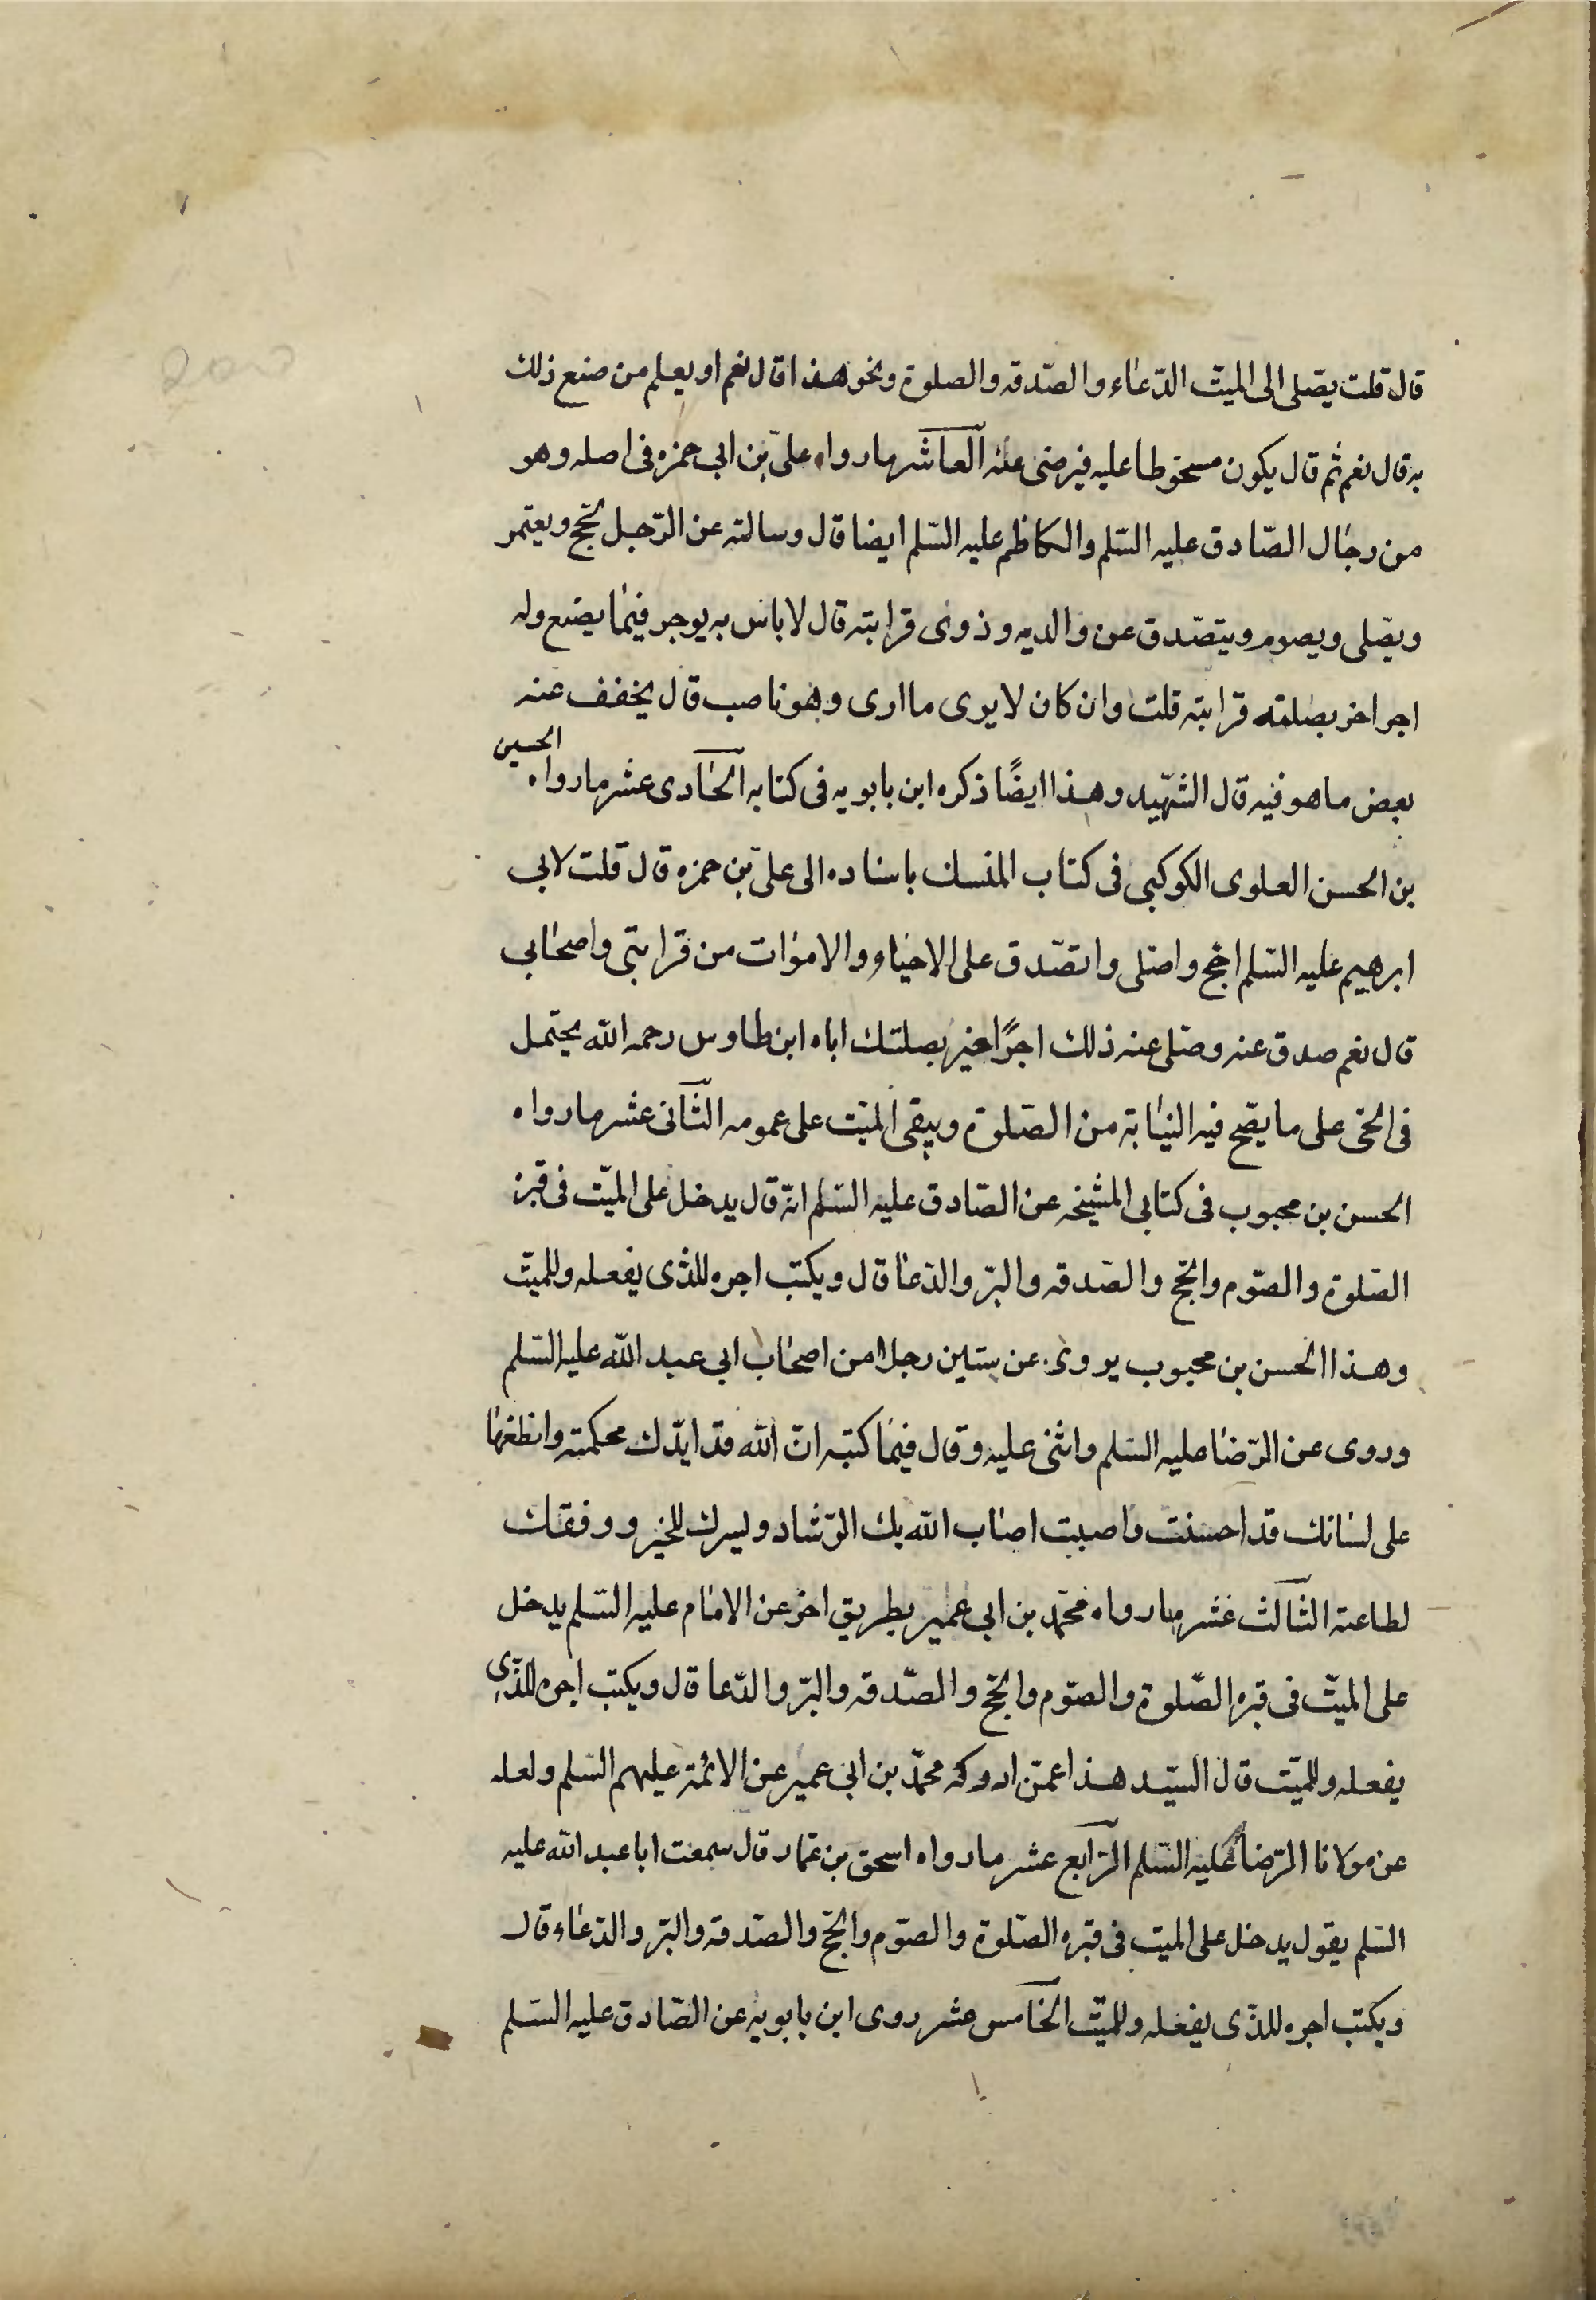 قال قلت يصلى الى الميت الدعاء والصدقه والصلوة ونحو هذا قال نعم او يعلم من صنع ذلك
به قال نعم ثم قال يكون مسخوطا عليه فيرضى عنه العاشر ما رواه على بن ابى حمزه فى اصله وهو
من رجال الصادق عليه السلم والكاظم عليه السلم ايضا قال وسالته عن الرجل يحج ويعتمر
ويصلى ويصوم ويتصدق عن والديه وذوى قرابته قال لا باس به يوجر فيما يصنع وله
اجر اخر بصلته قرابته قلت وان كان لا يرى ما ارى وهو ناصب قال يخفف عنه
بعض ما هو فيه قال الشهيد وهذا ايضًا ذكره ابن بابويه فى كتابه الحادى عشر ما رواه الحسين
بن الحسن العلوى الكوكبى فى كتاب المنسك باسناده الى على بن حمزه قال قلت لابى
ابرهيم عليه السلم احج واصلى واتصدق على الاحياء والاموات من قرابتى واصحابى
قال نعم صدق عنه وصلى عنه ذلك اجرًا خير بصلتك اباه ابن طاوس رحمه الله يحتمل
فى الحى على ما يصح فيه النيابة من الصلوة ويبقى الميت على عمومه الثانى عشر ما رواه
الحسن بن محبوب فى كتابى المشيخه عن الصادق عليه السلم انه قال يدخل على الميت فى قبره
الصلوة والصوم والحج والصدقه والبر والدعا قال ويكتب اجره للذى يفعله وللميت
وهذا الحسن بن محبوب يروى عن ستين رجلا من اصحاب ابى عبد الله عليه السلم
وروى عن الرضا عليه السلم واثنى عليه وقال فيما كتبه ان الله قد ايدك محكمته وانطقها
على لسانك قد احسنت واصبت اصاب الله بك الرشاد ويسرك للخير ووفقك
لطاعته الثالث عشر ما رواه محمد بن ابى عمير بطريق اخر عن الامام عليه السلم يدخل
على الميت فى قبره الصلوة والصوم والحج والصدقه والبر والدعا قال ويكتب اجره للذى
يفعله وللميت قال السيد هذا عمن ادركه محمد بن ابى عمير عن الائمة عليهم السلم ولعله
عن مولانا الرضا عليه السلم الرابع عشر ما رواه اسحق بن عمار قال سمعت ابا عبد الله عليه
السلم يقول يدخل على الميت فى قبره الصلوة والصوم والحج والصدقه والبر والدعاء قال
ويكتب اجره للذى يفعله وللميت الخامس عشر روى ابن بابويه عن الصادق عليه السلم